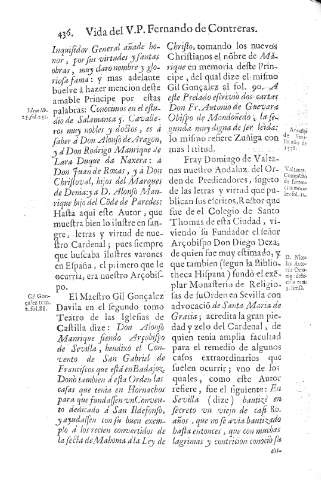 436. Vida del V.P. Fernando de Contreras.
Inquisidor General añade ho-
nor, por sus virtudes y santas
obras, muy claro nombre y glo-
riosa fama: y mas adelante
buelve à hazer mencion deste
amable Principe por estas
palabras: Conocimos en el estu-
dio de Salamanca 5. Cavalle-
ros muy nobles y doctos, es à
saber à Don Alonso de Aragon,
y à Don Rodrigo Manrique de
Lara Duque da Naxera: a
Don Juan de Roxas, y à Don
Christoval, hijos del Marques
de Denia: y à D. Alonso Man-
rique hijo del Cõde de Paredes:
Hasta aqui este Autor, que
muestra bien lo ilustre en san-
gre, letras y virtud de nues-
tro Cardenal; pues siempre
que buscaba ilustres varones
en España, el primero que le
ocurria, era nuestro Arçobis-
po.
El Maestro Gil Gonçalez
Davila en el segundo tomo
Teatro de las Iglesias de
Castilla dize: Don Alonso
Manrique siendo Arçobispo
de Sevilla, bendixo el Con-
vento de San Gabriel de
Franciscos que està en Badajoz,
Donò tambien à esta Orden las
casas que tenia en Hornachos
para que fundassen un Conven-
to dedicado à San Ildefonso,
y ayudassen con su buen exem-
plo à los recien convertidos de
la secta de Mahoma à la Ley de
Gil Gon-
çalez tom.
2. fol. 88.
Christo, tomando los nuevos
Christianos el nõbre de Mã-
rique en memoria deste Prin-
cipe, del qual dize el mismo
Gil Gonçalez al fol. 90. A
este Prelado escrivió dos cartas
Don Fr. Antonio de Guevara
Obispo de Mondoñedo, la se-
gunda muy digna de ser leida:
lo mismo refiere Zuñiga con
mas latitud.
Fray Domingo de Valta-
nas nuestro Andaluz, del Or-
den de Predicadores, sugeto
de las letras y virtud que pu-
blican sus escritos, Rector que
fue de el Colegio de Santo
Thomas de esta Ciudad, vi-
viendo su Fundador el señor
Arçobispo Don Diego Deza,
de quien fue muy estimado, y
que tambien (segun la Biblio-
theca Hispana) fundò el exẽ-
plar Monasterio de Religio-
sas de su Orden en Sevilla con
advocació de Santa Maria de
Gracia; acredita la gran pie-
dad y zelo del Cardenal, de
quien tenia amplia facultad
para el remedio de algunos
casos extraordinarios que
suelen ocurrir; vno de los
quales, como este Autor
refiere, fue el siguiente: En
Sevilla (dize) bautizè en
secreto un viejo de casi 80.
años, que no se avia bautizado
hasta entonces, que con muchas
lagrimas y contricion conociò su